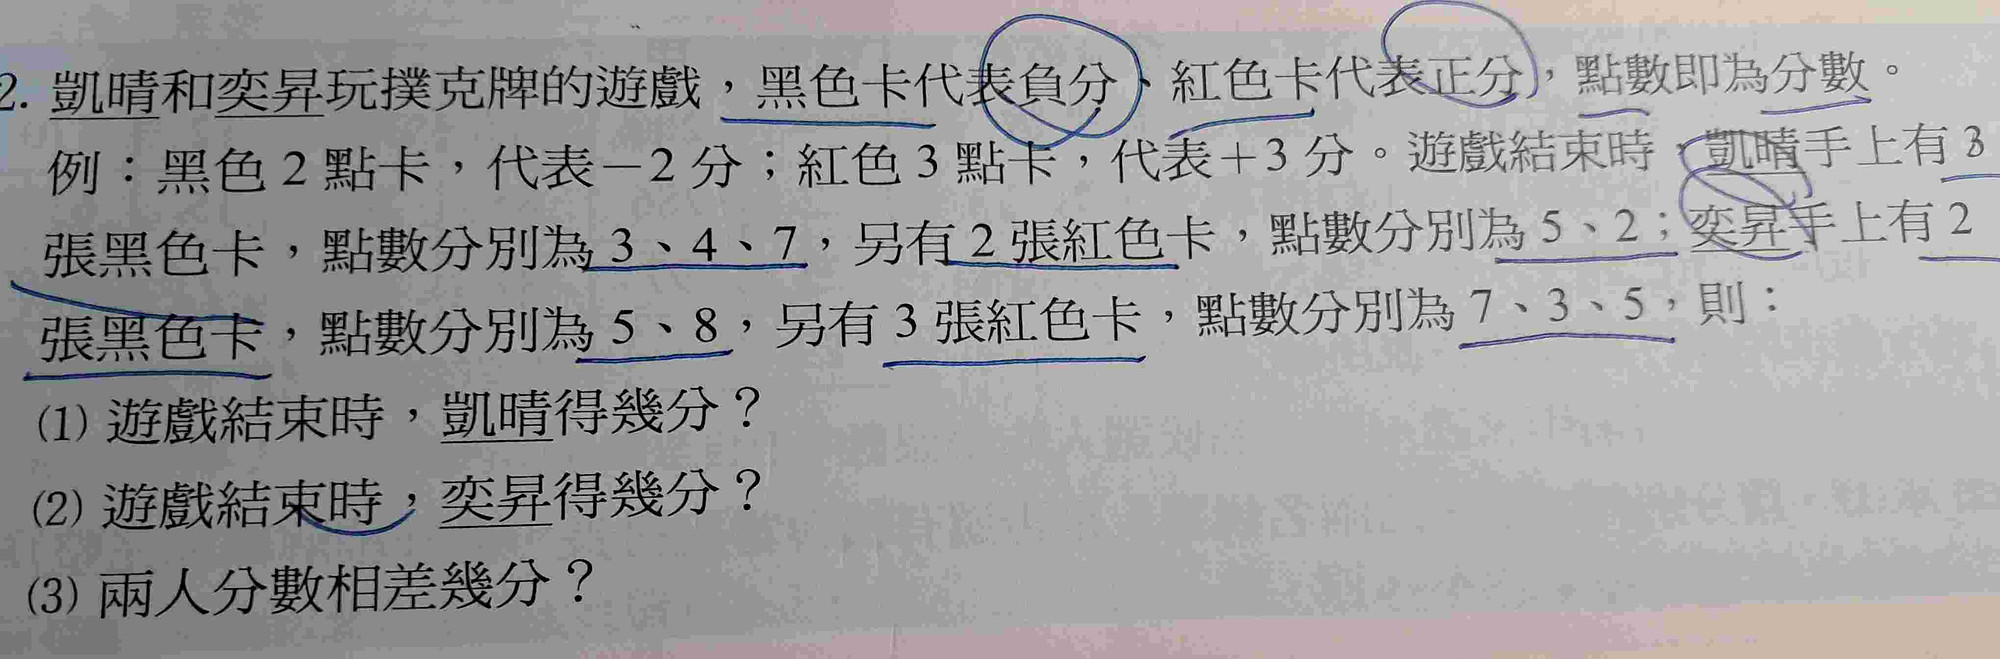 2. 凱晴和奕昇玩撲克牌的遊戲，黑色卡代表負分、紅色卡代表正分，點數即為分數。
例：黑色 2 點卡，代表－2 分；紅色 3 點卡，代表＋3 分。遊戲結束時，凱晴手上有 3
張黑色卡，點數分別為 3、4、7，另有 2 張紅色卡，點數分別為 5、2；奕昇手上有 2
張黑色卡，點數分別為 5、8，另有 3 張紅色卡，點數分別為 7、3、5，則：
(1) 遊戲結束時，凱晴得幾分？
(2) 遊戲結束時，奕昇得幾分？
(3) 兩人分數相差幾分？